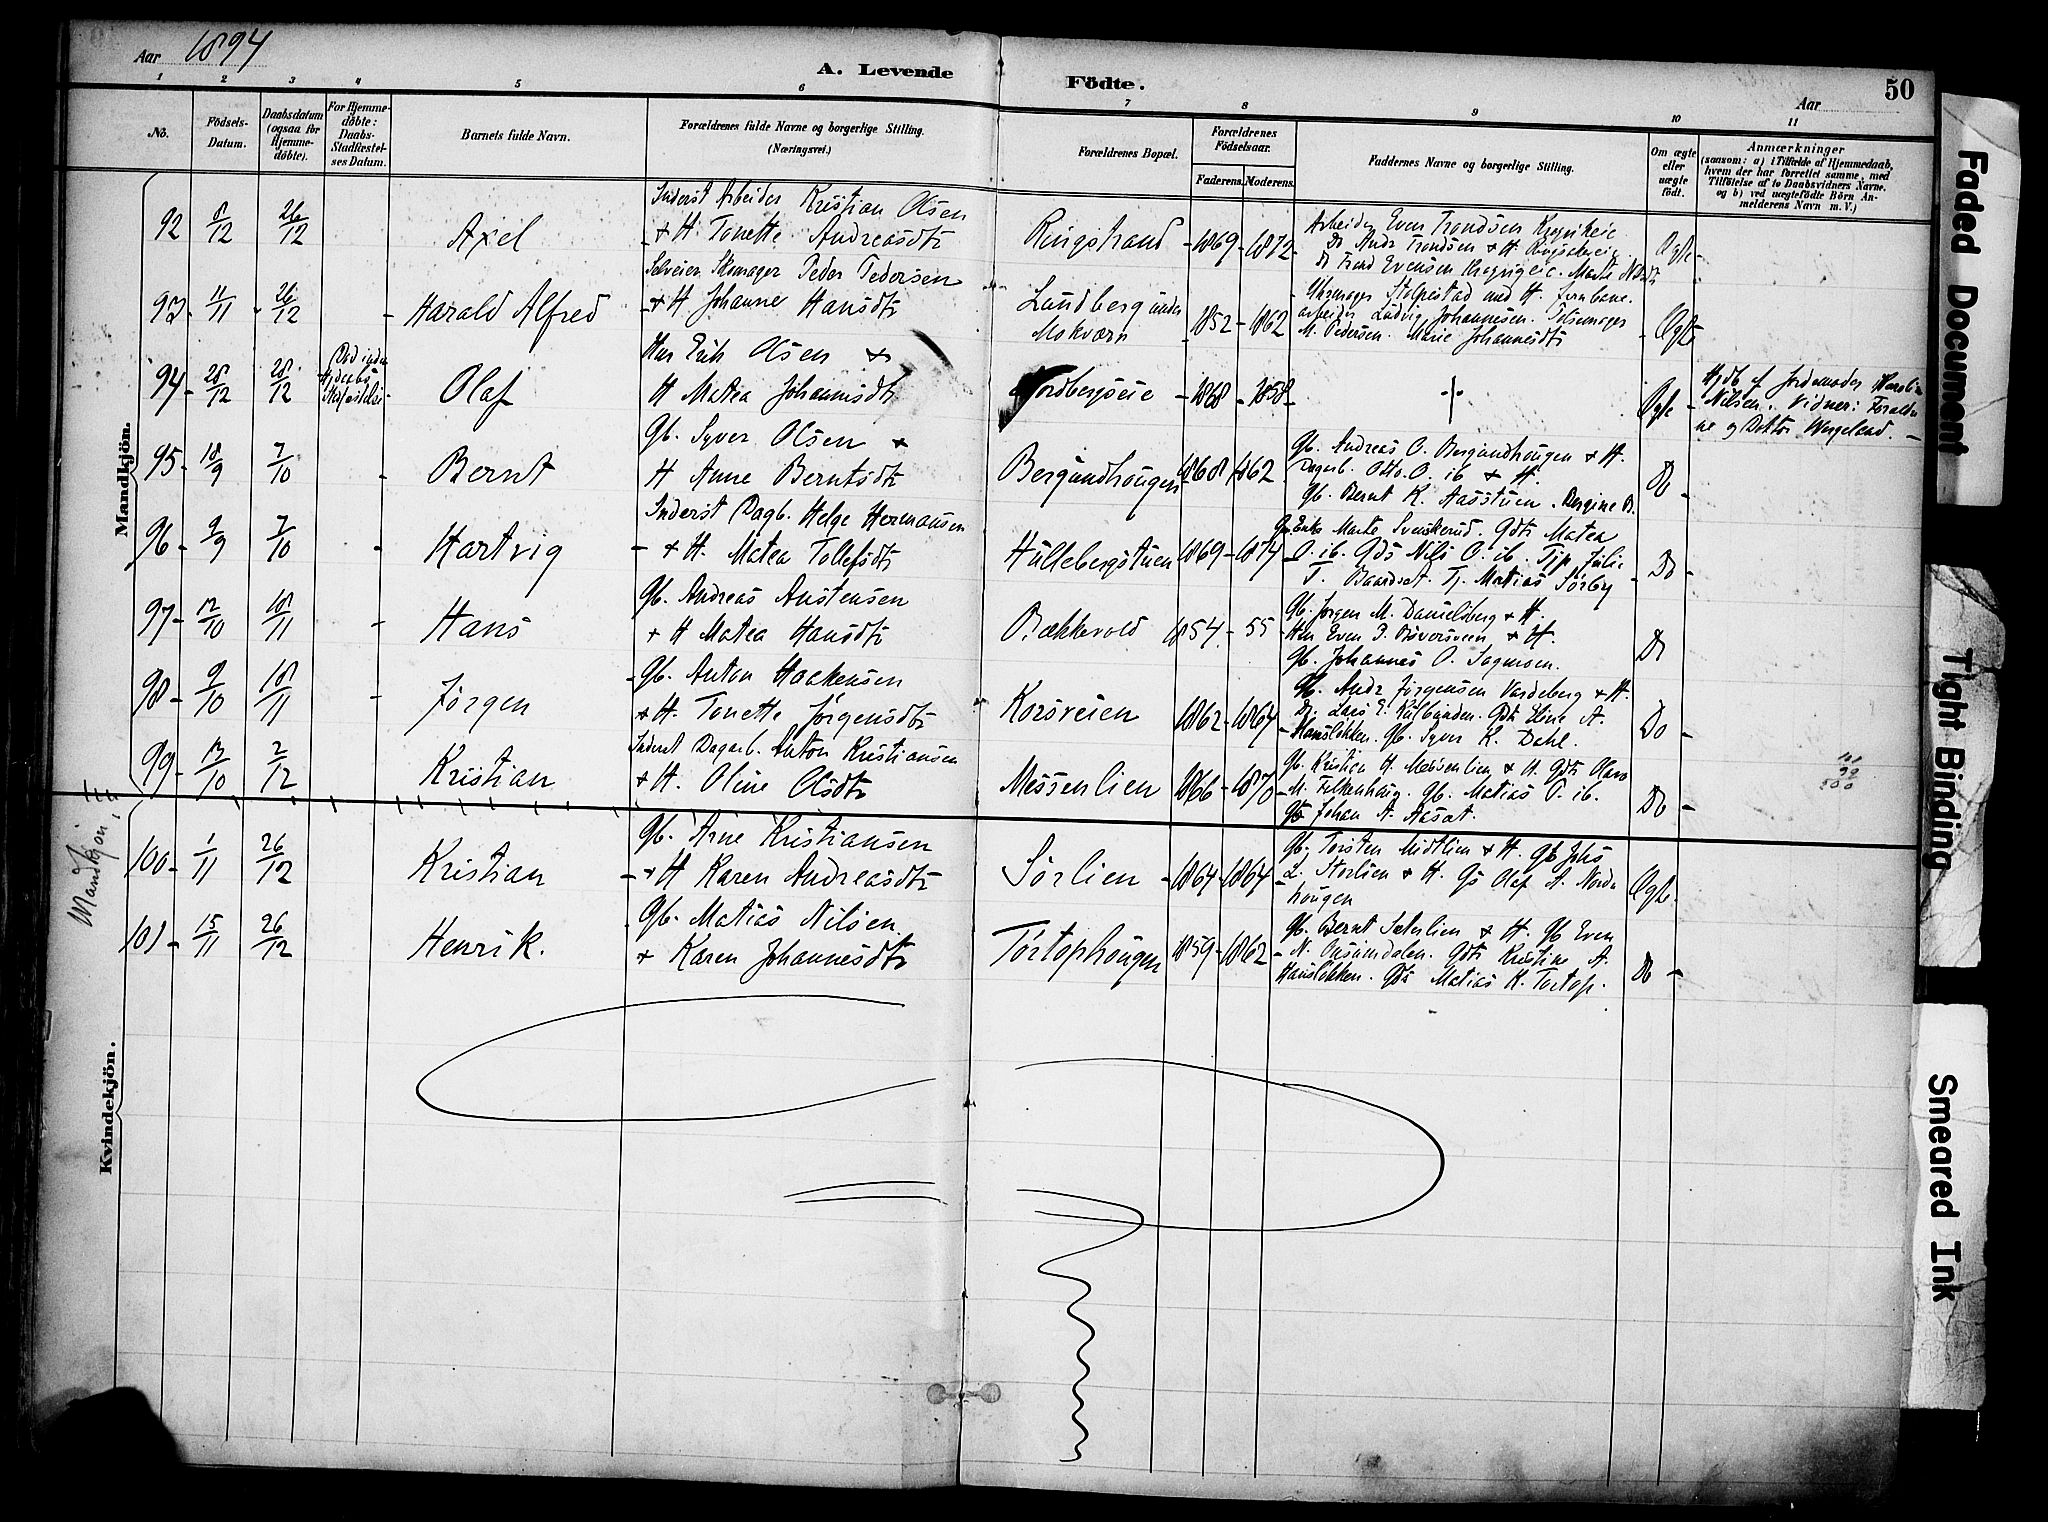 Aar 1894
A. Levende Födte.
Aar
50
1 2 3 4 5 6 7 8 9 10 11
No.
Födsels-Datum.
Daabsdatum (ogsaa for Hjemmedöbte).
For Hjemmedöbte: Daabs-Stadfæstelses Datum.
Barnets fulde Navn.
Forældrenes fulde Navne og borgerlige Stilling.
(Næringsvei.)
Forældrenes Bopæl.
Forældrenes Födselsaar.
Faderens. Moderens.
Faddernes Navne og borgerlige Stilling.
Om ægte eller uægte födt.
Anmærkninger
(saasom: a) i Tilfælde af Hjemmedaab, hvem der har forrettet samme, med Tilföielse af to Daabsvidners Navne, og b) ved uægtefödte Börn Anmelderens Navn m. V.)
Mandkjön.
92 8/12 26/12 Axel
Inderst Arbeider Kristian Olsen
+ H. Tonette Andreasdtr
Ringstrand 1869 - 1872
Arbeider Even Trondsen
Do Andr Trondsen + H.
Do Trond Evensen
Ægte
93 11/11 26/12 Harald Alfred
Selveier Skomager Peder Pedersen
+ H Johanne Hansdtr
Lundberg under
Mokværn 1852 - 1862
Uhrmager Stolpestad med H. Jernbane
arbeider Ludvig Johannesen.
M. Pedersen. Marie Johannesdtr
Ægte
94 28/12 28/12 Olaf
Hus Erik Olsen +
H Matea Johannesdtr
Nordbergseie 1868 - 1858
Ægte
Hjdb af Jordemoder
Nilsen. Vidner: Forældre
ne og Doktor Wergeland.
95 18/9 7/10 Bernt
Gb. Syver Olsen +
H Anne Berntsdtr
Bergundhougen 1868 1862
Gb. Andreas O. Bergundhougen + H.
Dagarb. Otto O. ib + H.
Gb. Bernt K. Aasstuen.
Do
96 9/9 7/10 Hartvig
Inderst Dagb. Helge Hermansen
+ H. Matea Tollefsdtr
Hullebergstuen 1869 - 1874
Enke Marte Svenskerud. Gdtr Matea
O. ib. Gds Nils O. ib. Tjp Julie
T. Baardset. Tj. Matias Sørby
Do
97 12/10 18/11 Hans
Gb. Andreas Austensen
+ H Matea Hansdtr
Bækkevold 1854 - 55
Gb. Jørgen M. Danielsberg + H.
Hm Even P. Bøversveen + H.
Gb. Johannes O.
Do
98 9/10 18/11 Jørgen
Gb. Anton Haakensen
+ H. Tonette Jørgensdtr
Korsveien 1862 - 1864
Gb. Andr Jørgensen Vardeberg + H.
Do. Lars E. Kulbunden. Gdtr Eline A.
Hanslökken. Gb. Syver K. Dahl.
Do
99 12/10 2/12 Kristian
Inderst Dagarb. Anton Kristiansen
+ H. Oline Olsdtr
Messenlien 1866 - 1870
Gb. Kristian H. Messenlien + H. Gdtr Olava
M. Falkenhaug. Gb. Matias O. ib.
Gb Johan A. Aasæt.
Do
Mandkjön
100 1/11 26/12 Kristian
Gb. Arne Kristiansen
+ H Karen Andreasdtr
Sörlien 1864 - 1864
Gb. Torsten Midtlien + H. Gb Johs
L. Storlien + H. Gs Olaf A. Nordhougen
Ægte
101 15/11 26/12 Henrik.
Gb. Matias Nilsen.
+ Karen Johannesdtr
Tortophougen 1859 - 1862
Gb. Bernt Sæterlien + H. Gb Even
N. Gdtr Kristine A.
Hanslökken. Matias K. Tortop.
Do
Kvindekjön.
Faded Document
Tight Binding
Smeared Ink